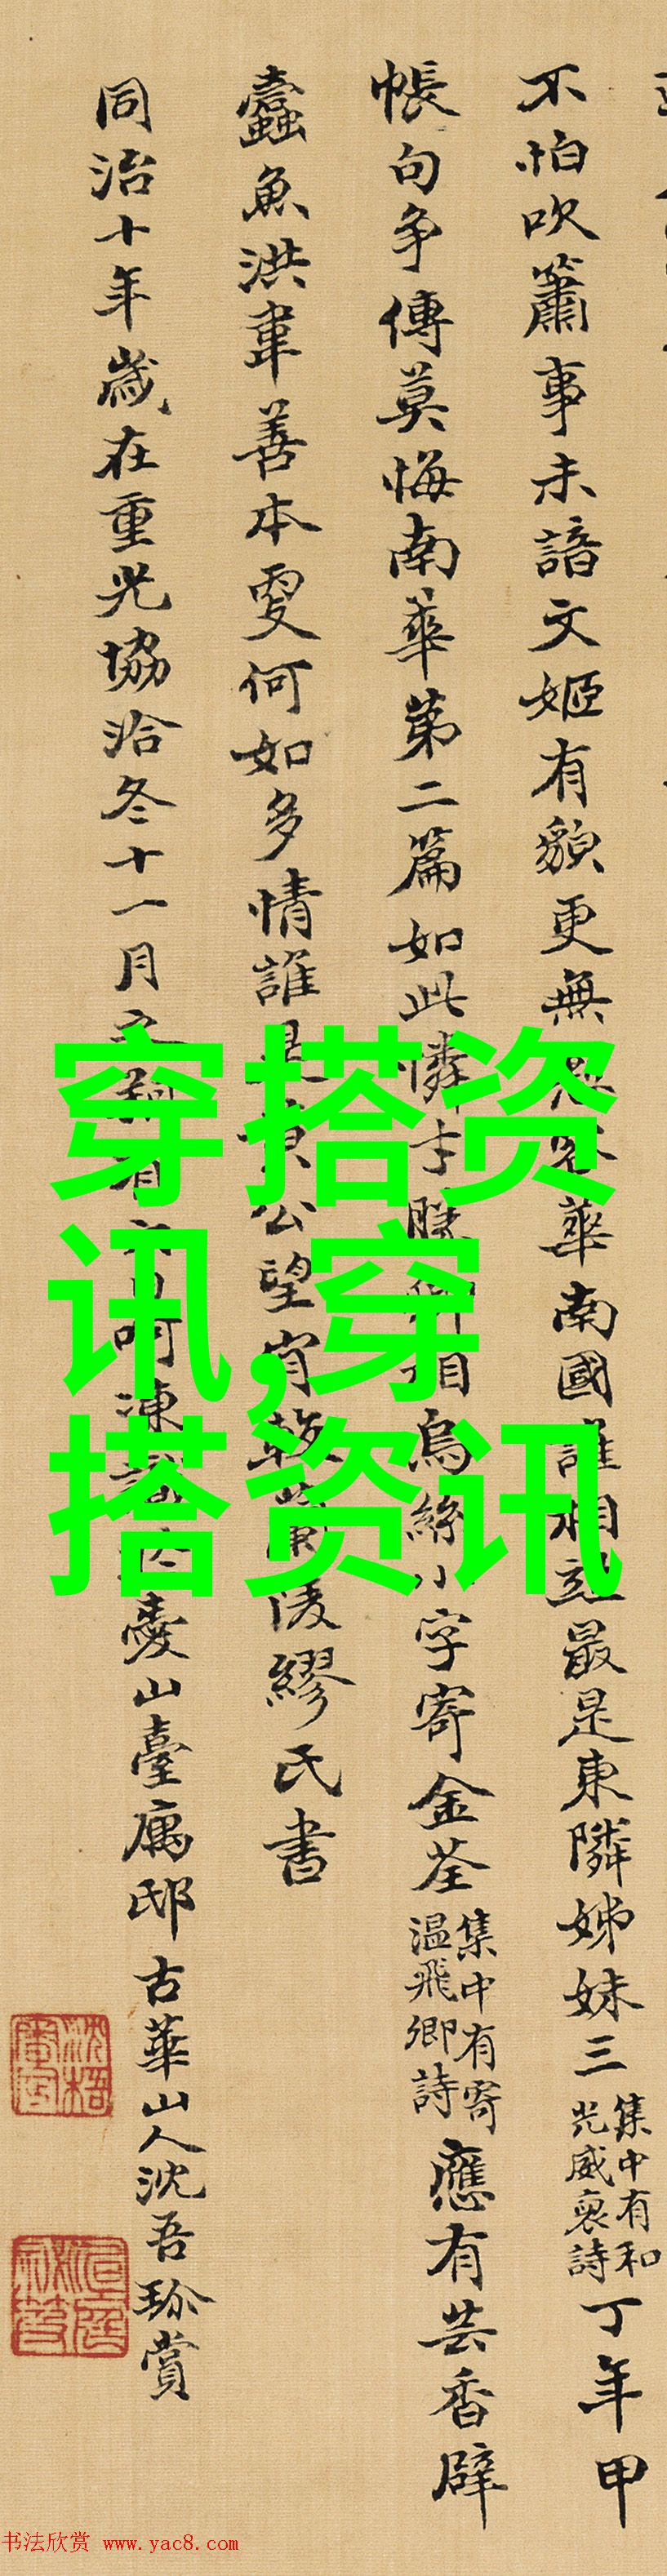 不怕吹簫事未諳文姬有貌更無華南國誰相最是東隣姊妹三集中有和光威裒詩丁年甲
帳句爭傳莫悔南華第二篇如此憐才勝相烏絲小字寄金荃集中有寄溫飛卿詩應有芸香辟
蠹魚洪韋善本更何如多情誰是黃公望肯蘭陵繆氏書
同治十年歲在重光協洽冬十一月呵凍山臺寓邸古華山人沈吾珍賞
穿搭资
讯,穿
搭资讯
书法欣赏 www.yac8.com